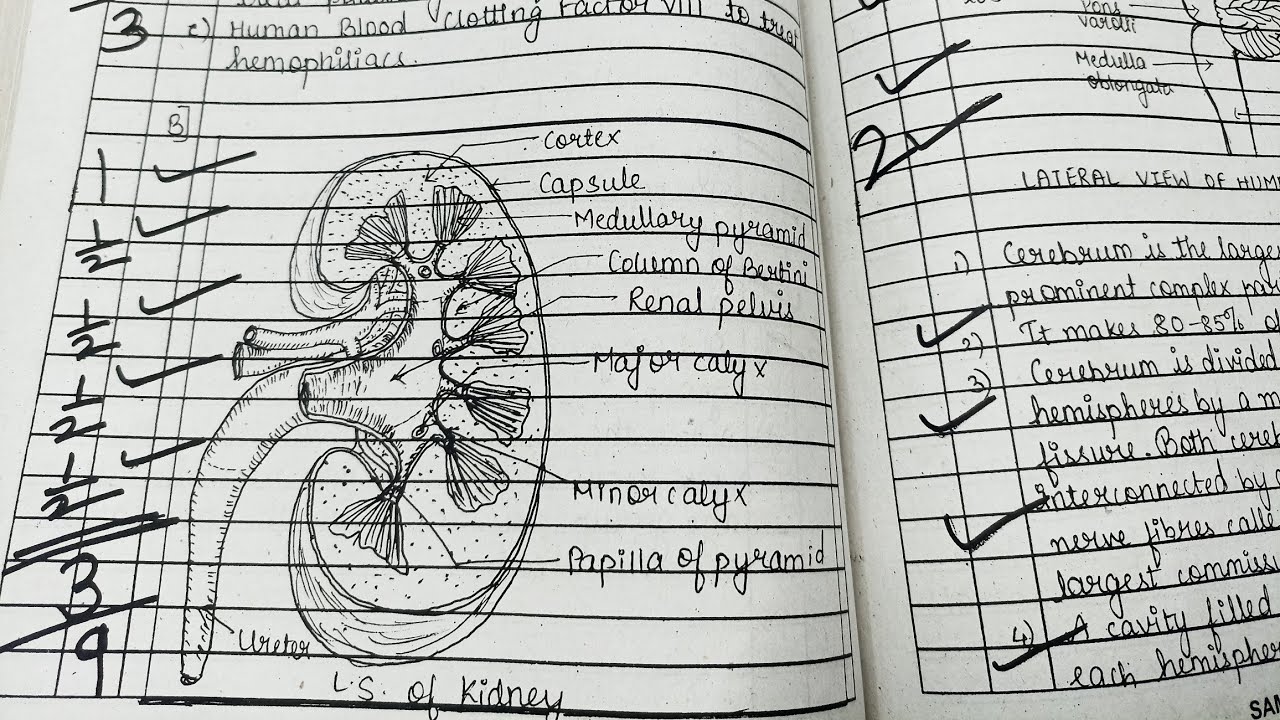 3 c) Human Blood clotting Factor VIII to treat
hemophiliacs.
B]
1
1/2
1/2
1/2
1/2
3
9
Cortex
Capsule
Medullary pyramid
Column of Bertini
Renal pelvis
Major calyx
Minor calyx
Papilla of pyramid
Ureter
L.S. of Kidney
Pons
varolii
Medulla
oblongata
2
LATERAL VIEW OF
1) Cerebrum is the
prominent complex
2) It makes 80-85%
3) Cerebrum is divided
hemispheres by a
fissure. Both
interconnected by
nerve fibres
largest
4) A cavity filled
each